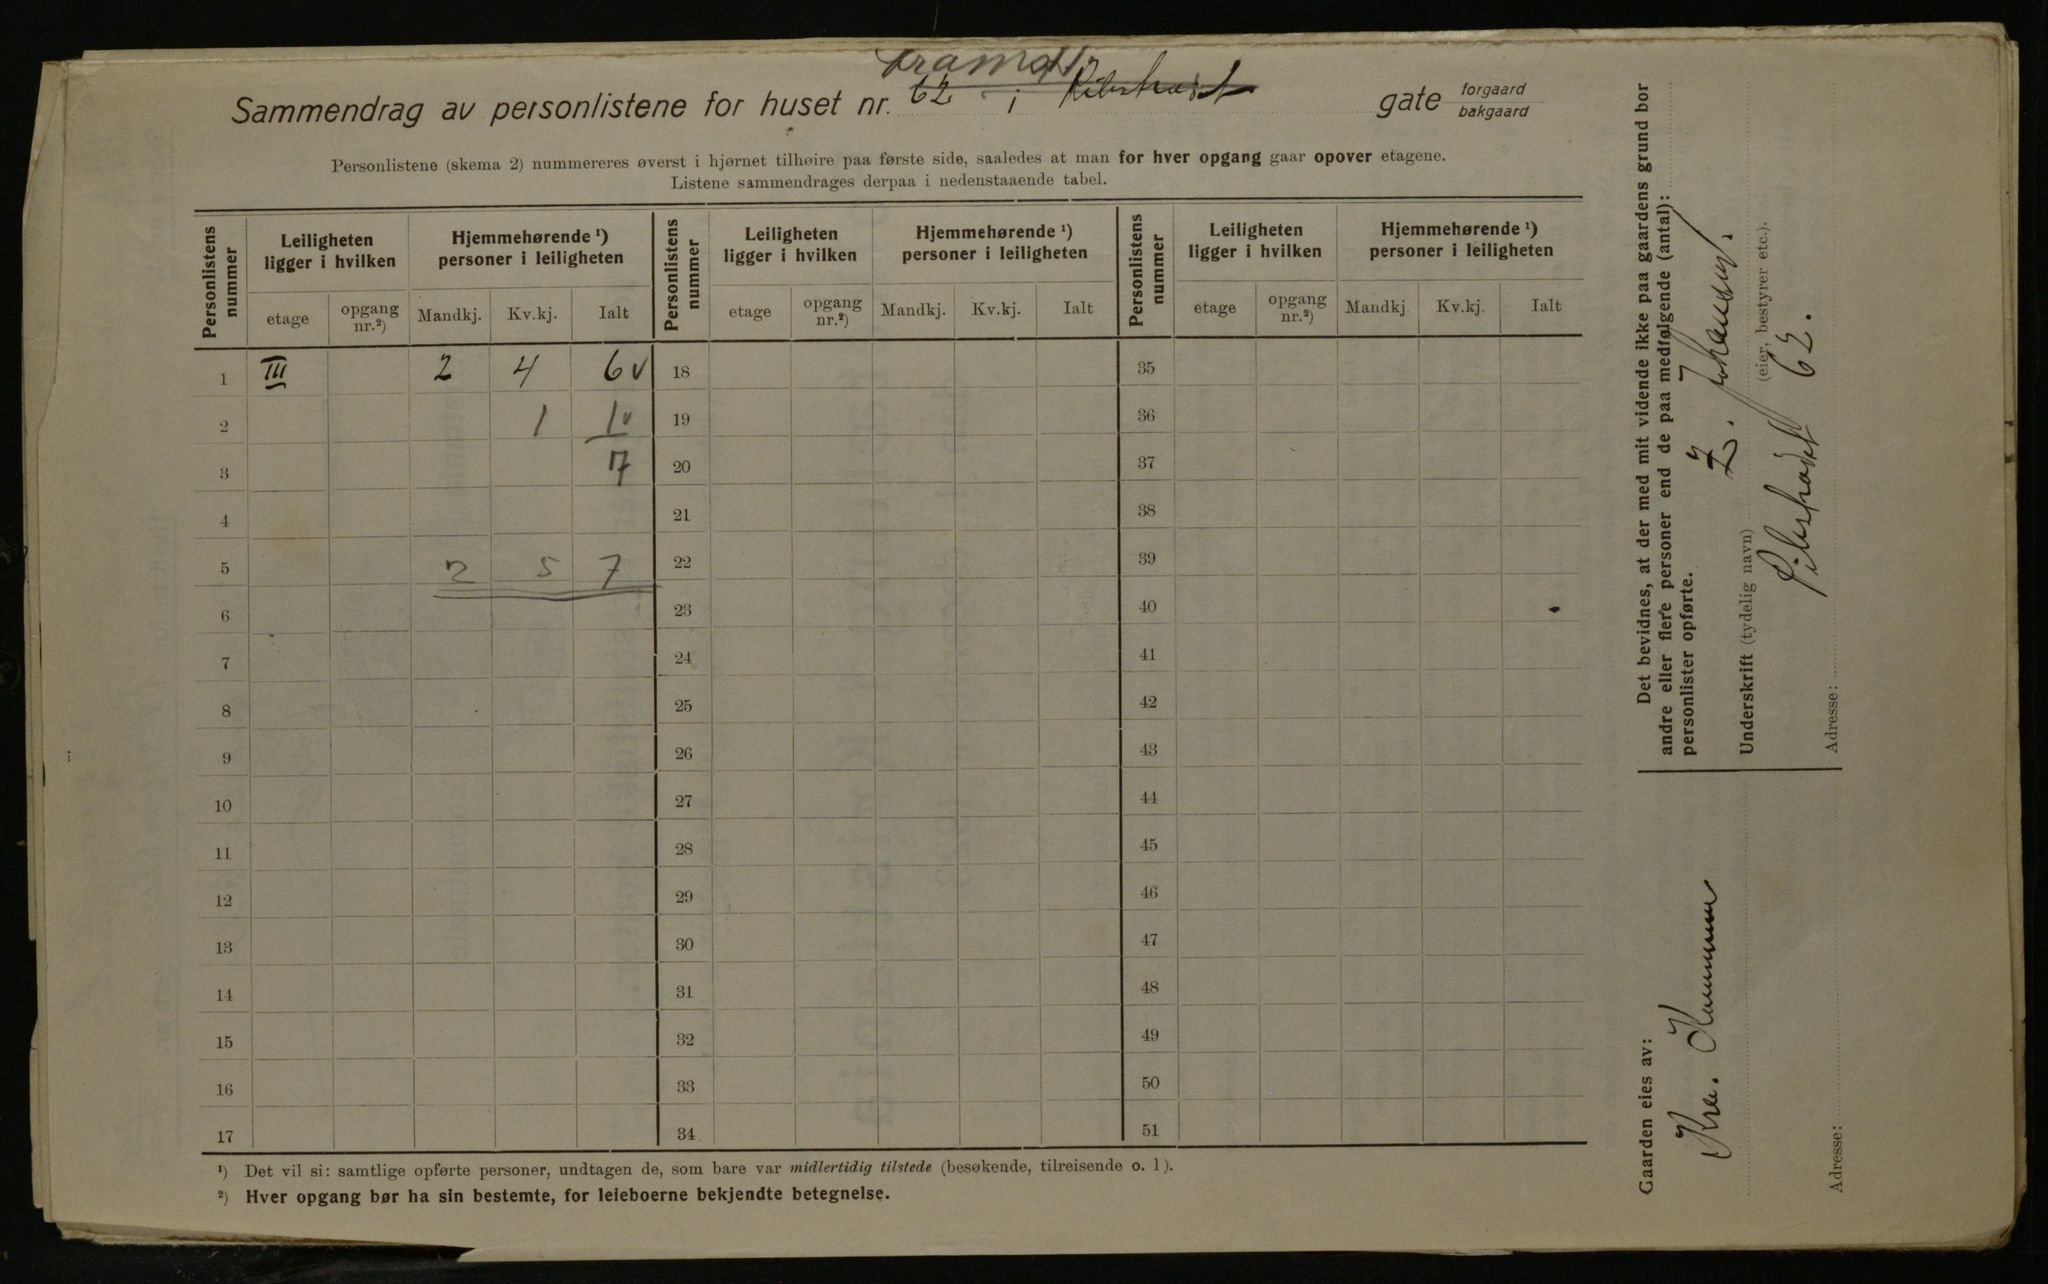 Sammendrag av personlistene for huset nr. 62 i Pilestrædet gate forgaard bakgaard
Personlistene (skema 2) nummereres øverst i hjørnet tilhøire paa første side, saaledes at man for hver opgang gaar opover etagene.
Listene sammendrages derpaa i nedenstaaende tabel.
Personlistens nummer | Leiligheten ligger i hvilken | Hjemmehørende ¹) personer i leiligheten | Personlistens nummer | Leiligheten ligger i hvilken | Hjemmehørende ¹) personer i leiligheten | Personlistens nummer | Leiligheten ligger i hvilken | Hjemmehørende ¹) personer i leiligheten
etage | opgang nr.²) | Mandkj. | Kv.kj. | Ialt | etage | opgang nr.²) | Mandkj. | Kv.kj. | Ialt | etage | opgang nr.²) | Mandkj | Kv.kj. | Ialt
1 III 2 4 6 v 18 35
2 1 1 v 19 36
3 7 20 37
4 21 38
5 2 5 7 22 39
6 23 40
7 24 41
8 25 42
9 26 43
10 27 44
11 28 45
12 29 46
13 30 47
14 31 48
15 32 49
16 33 50
17 34 51
¹) Det vil si: samtlige opførte personer, undtagen de, som bare var midlertidig tilstede (besøkende, tilreisende o. l).
²) Hver opgang bør ha sin bestemte, for leieboerne bekjendte betegnelse.
Det bevidnes, at der med mit vidende ikke paa gaardens grund bor
andre eller flere personer end de paa medfølgende (antal):
personlister opførte.
Underskrift (tydelig navn) Z. Johansen.
(eier, bestyrer etc.).
Pilestrædet 62.
Adresse:
Gaarden eies av:
Kra. Kommune
Adresse: